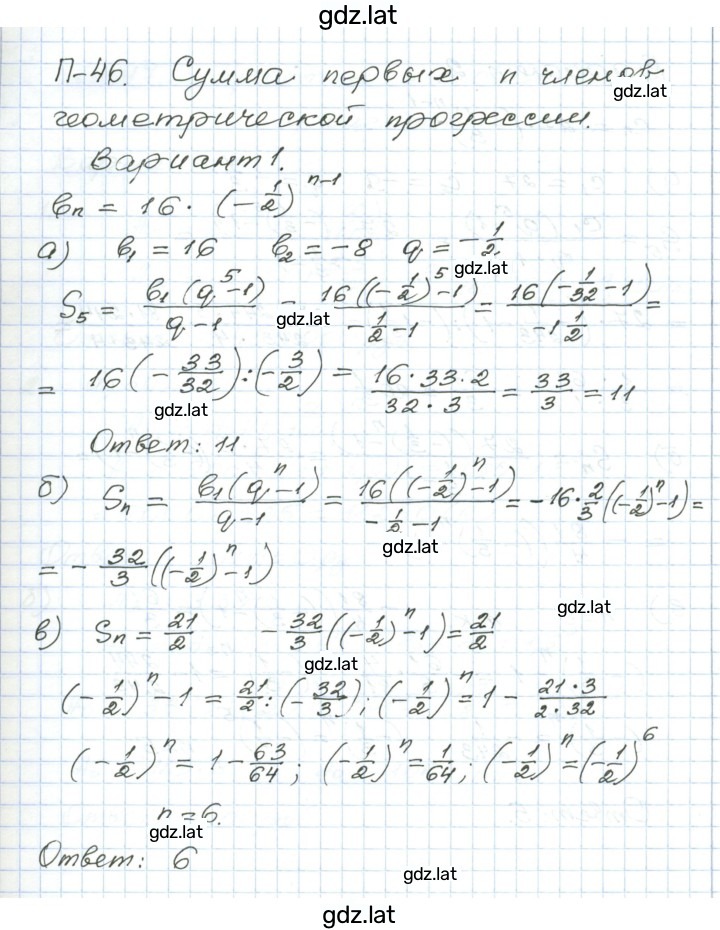 gdz.lat
П-46. Сумма первых n членов
gdz.lat
геометрической прогрессии.
Вариант 1.
bₙ = 16 · (-1/2)^(n-1)
а) b₁ = 16 b₂ = -8 q = -1/2
gdz.lat
S₅ = b₁(q⁵-1)/(q-1) = 16((-1/2)⁵-1)/(-1/2-1) = 16(-1/32-1)/(-1 1/2) =
gdz.lat
= 16(-33/32):(-3/2) = (16·33·2)/(32·3) = 33/3 = 11
gdz.lat
Ответ: 11
б) Sₙ = b₁(qⁿ-1)/(q-1) = 16((-1/2)ⁿ-1)/(-1/2-1) = -16·2/3((-1/2)ⁿ-1) =
gdz.lat
= -32/3((-1/2)ⁿ-1)
gdz.lat
в) Sₙ = 21/2 -32/3((-1/2)ⁿ-1) = 21/2
gdz.lat
(-1/2)ⁿ-1 = 21/2:(-32/3); (-1/2)ⁿ = 1 - (21·3)/(2·32)
(-1/2)ⁿ = 1 - 63/64; (-1/2)ⁿ = 1/64; (-1/2)ⁿ = (-1/2)⁶
n = 6.
gdz.lat
Ответ: 6
gdz.lat
gdz.lat